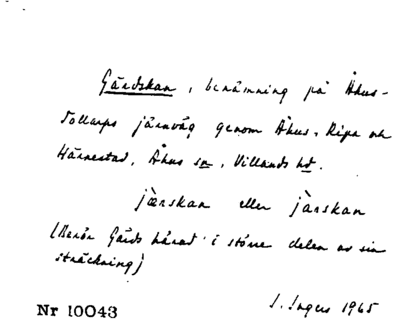 Gärdskan, benämning på Åhus-
Tollarps järnväg genom Åhus, Ripa och
Härnestad, Åhus sn, Villands hd.
jærskan eller jàrskan
(Berör Gärds härad i större delen av sin
sträckning)
S. Ingers 1965
Nr 10043